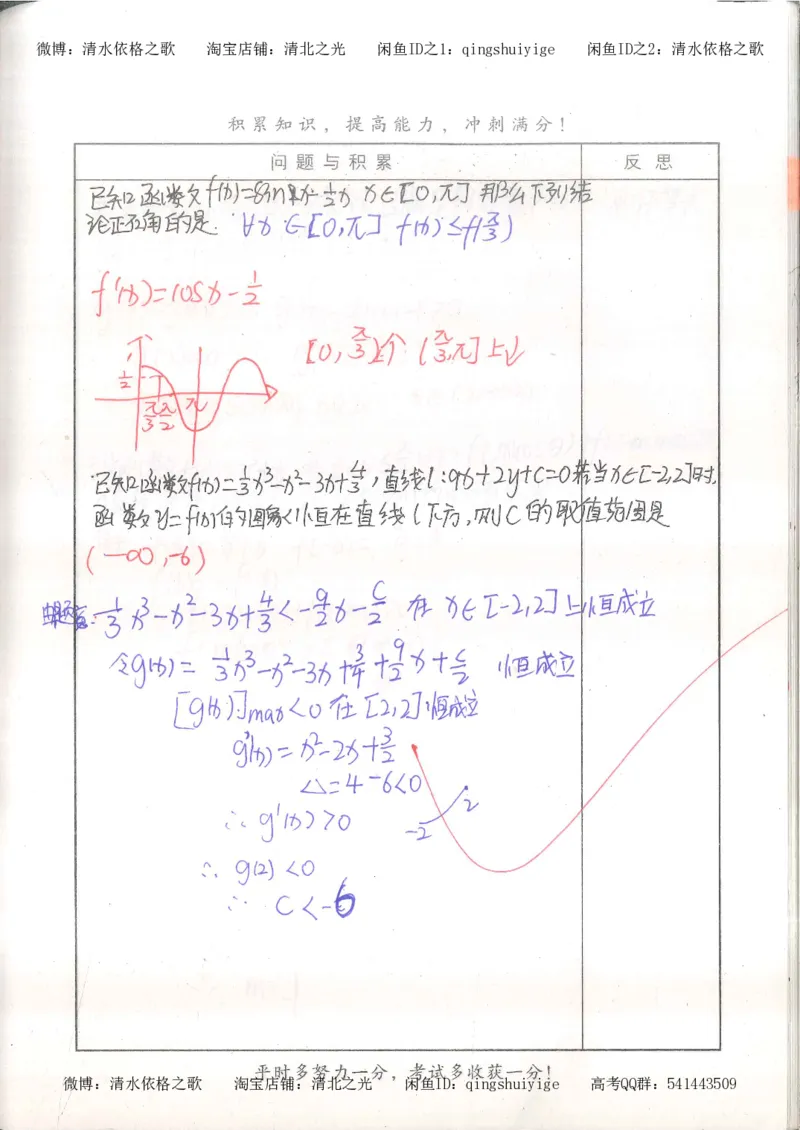 微博：清水依格之歌 淘宝店铺：清北之光 闲鱼ID之1：qingshuiyige 闲鱼ID之2：清水依格之歌
积累知识，提高能力，冲刺满分！
问题与积累 反思
已知函数 f(x)=sinx-½x x∈[0,π] 那么下列结
论正确的是. ∀x∈[0,π] f(x)≤f(π/3)
f'(x)=cosx-1/2
[0,π/3)上↑ (π/3,π]上↓
1/2 π/3 π/2 π
已知函数f(x)=1/3x³-x²-3x+4/3，直线l:9x+2y+c=0若当x∈[-2,2]时，
函数y=f(x)的图象恒在直线l下方，则c的取值范围是
(-∞,-6)
由题意:1/3x³-x²-3x+4/3<-9/2x-c/2 在 x∈[-2,2]上恒成立
令g(x)=1/3x³-x²-3x+3/4+9/2x+c/2 恒成立
[g(x)]max<0 在[2,2]恒成立
g'(x)=x²-2x+3/2
△=4-6<0
∴g'(x)>0 -2 2
∴g(2)<0
∴c<-6
平时多努力一分，考试多收获一分！
微博：清水依格之歌 淘宝店铺：清北之光 闲鱼ID：qingshuiyige 高考QQ群：541443509